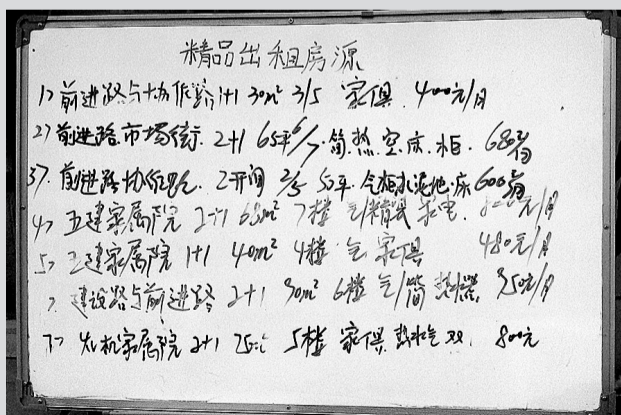 精品出租房源
1> 前进路与协作路 1+1 30m² 3/5 家俱 400元/月
2> 前进路市场街. 2+1 65平 6/7. 简.热.空.床.柜. 680元/月
37. 前进路协作路. 2开间 2/5 50平. 水泥地.床 600元/月
4> 五建家属院 2+1 68m² 7楼 气/精装 家电. 元/月
5> 五建家属院 1+1 40m² 4楼 气 家俱 480元/月
建设路与前进路 2+1 90m² 6楼 气/简 热器 元/月
7> 机家属院 2+1 5楼 家俱 热水气 双. 800元